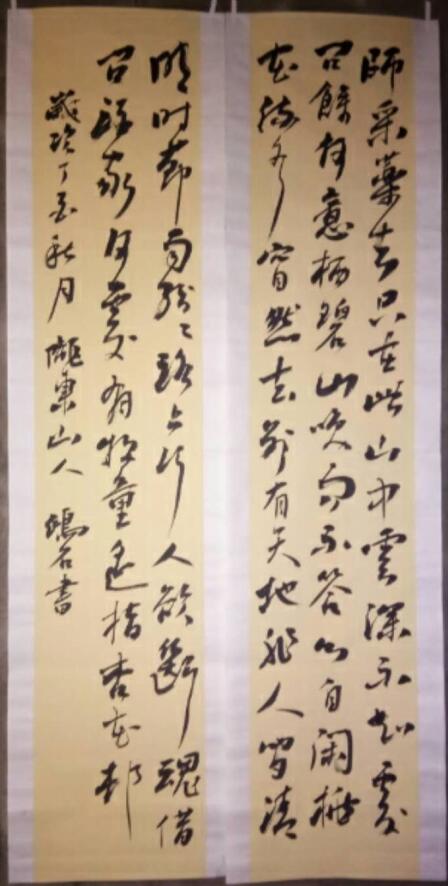 師采藥去只在此山中雲深不知處
問餘何意栖碧山笑而不答心自閑桃
花流水窅然去別有天地非人間清
明时節雨紛々路上行人欲斷魂借
問酒家何處有牧童遙指杏花村
歲丁酉秋月 隴東山人 石書